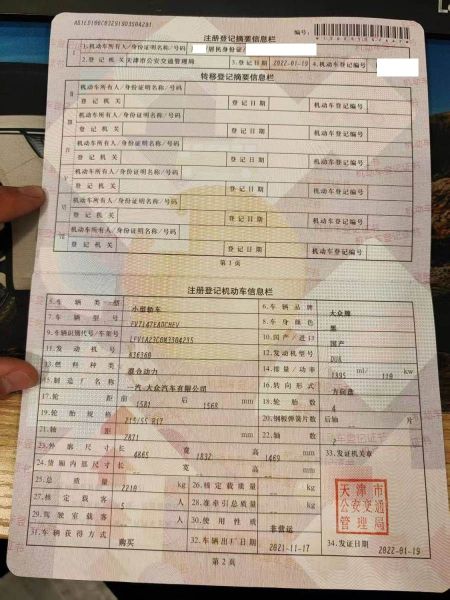 注册登记摘要信息栏
编号:
1.机动车所有人/身份证明名称/号码 居民身份证/
2.登记机关 天津市公安交通管理局 3.登记日期 2022-01-19 4.机动车登记编号
转移登记摘要信息栏
Ⅱ 机动车所有人/身份证明名称/号码
登记机关 登记日期 机动车登记编号
Ⅲ 机动车所有人/身份证明名称/号码
登记机关 登记日期 机动车登记编号
Ⅳ 机动车所有人/身份证明名称/号码
登记机关 登记日期 机动车登记编号
Ⅴ 机动车所有人/身份证明名称/号码
登记机关 登记日期 机动车登记编号
Ⅵ 机动车所有人/身份证明名称/号码
登记机关 登记日期 机动车登记编号
Ⅶ 机动车所有人/身份证明名称/号码
登记机关 登记日期 机动车登记编号
第1页
注册登记机动车信息栏
5.车辆类型 小型轿车 6.车辆品牌 大众牌
7.车辆型号 8.车身颜色 黑
9.车辆识别代号/车架号 10.国产/进口 国产
11.发动机号 12.发动机型号 DUK
13.燃料种类 混合动力 14.排量/功率 1395 ml/ 110 kw
15.制造厂名称 一汽-大众汽车有限公司 16.转向形式 方向盘
17.轮距 前 1581 后 1568 mm 18.轮胎数 4
19.轮胎规格 215/55 R17 20.钢板弹簧片数 后轴 片
21.轴距 2871 mm 22.轴数 2
23.外廓尺寸 长 4865 宽 1832 高 1469 mm 33.发证机关章
24.货厢内部尺寸 长 宽 高 mm
25.总质量 2210 kg 26.核定载质量 kg
27.核定载客 5 人 28.准牵引总质量 kg
29.驾驶室载客 人 30.使用性质 非营运
31.车辆获得方式 购买 32.车辆出厂日期 2021-11-17 34.发证日期 2022-01-19
天津市
公安交通
管理局
第2页